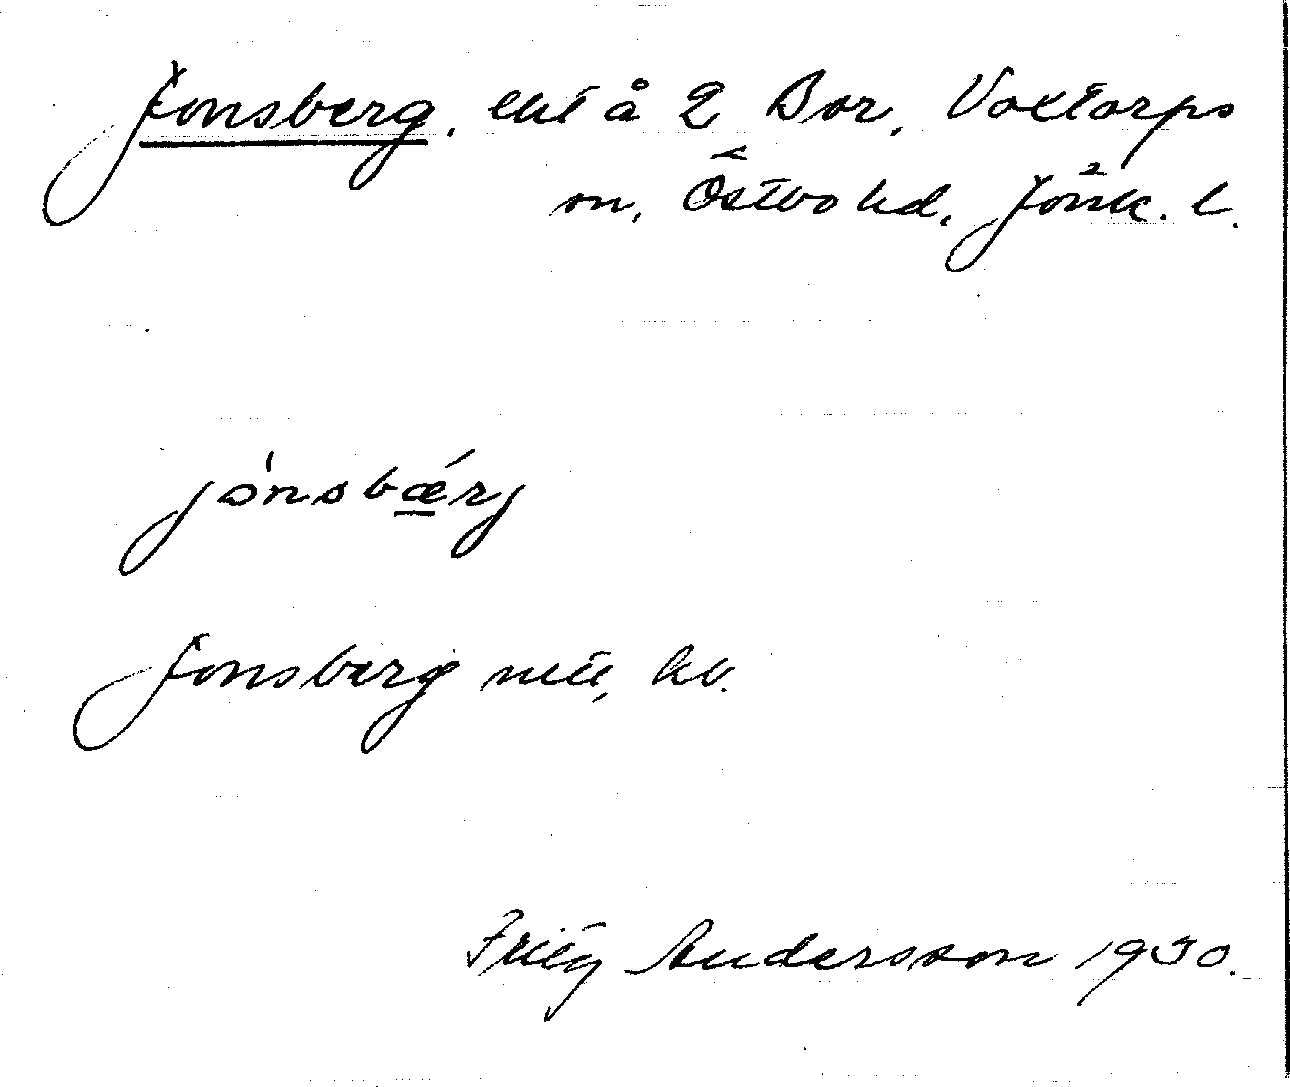 Jonsberg, lht å 2 Bor, Voxtorps
sn, Östbo hd, Jönk. l.
jo̍nsbǽ̲rj
Jonsberg
Andersson 1930.